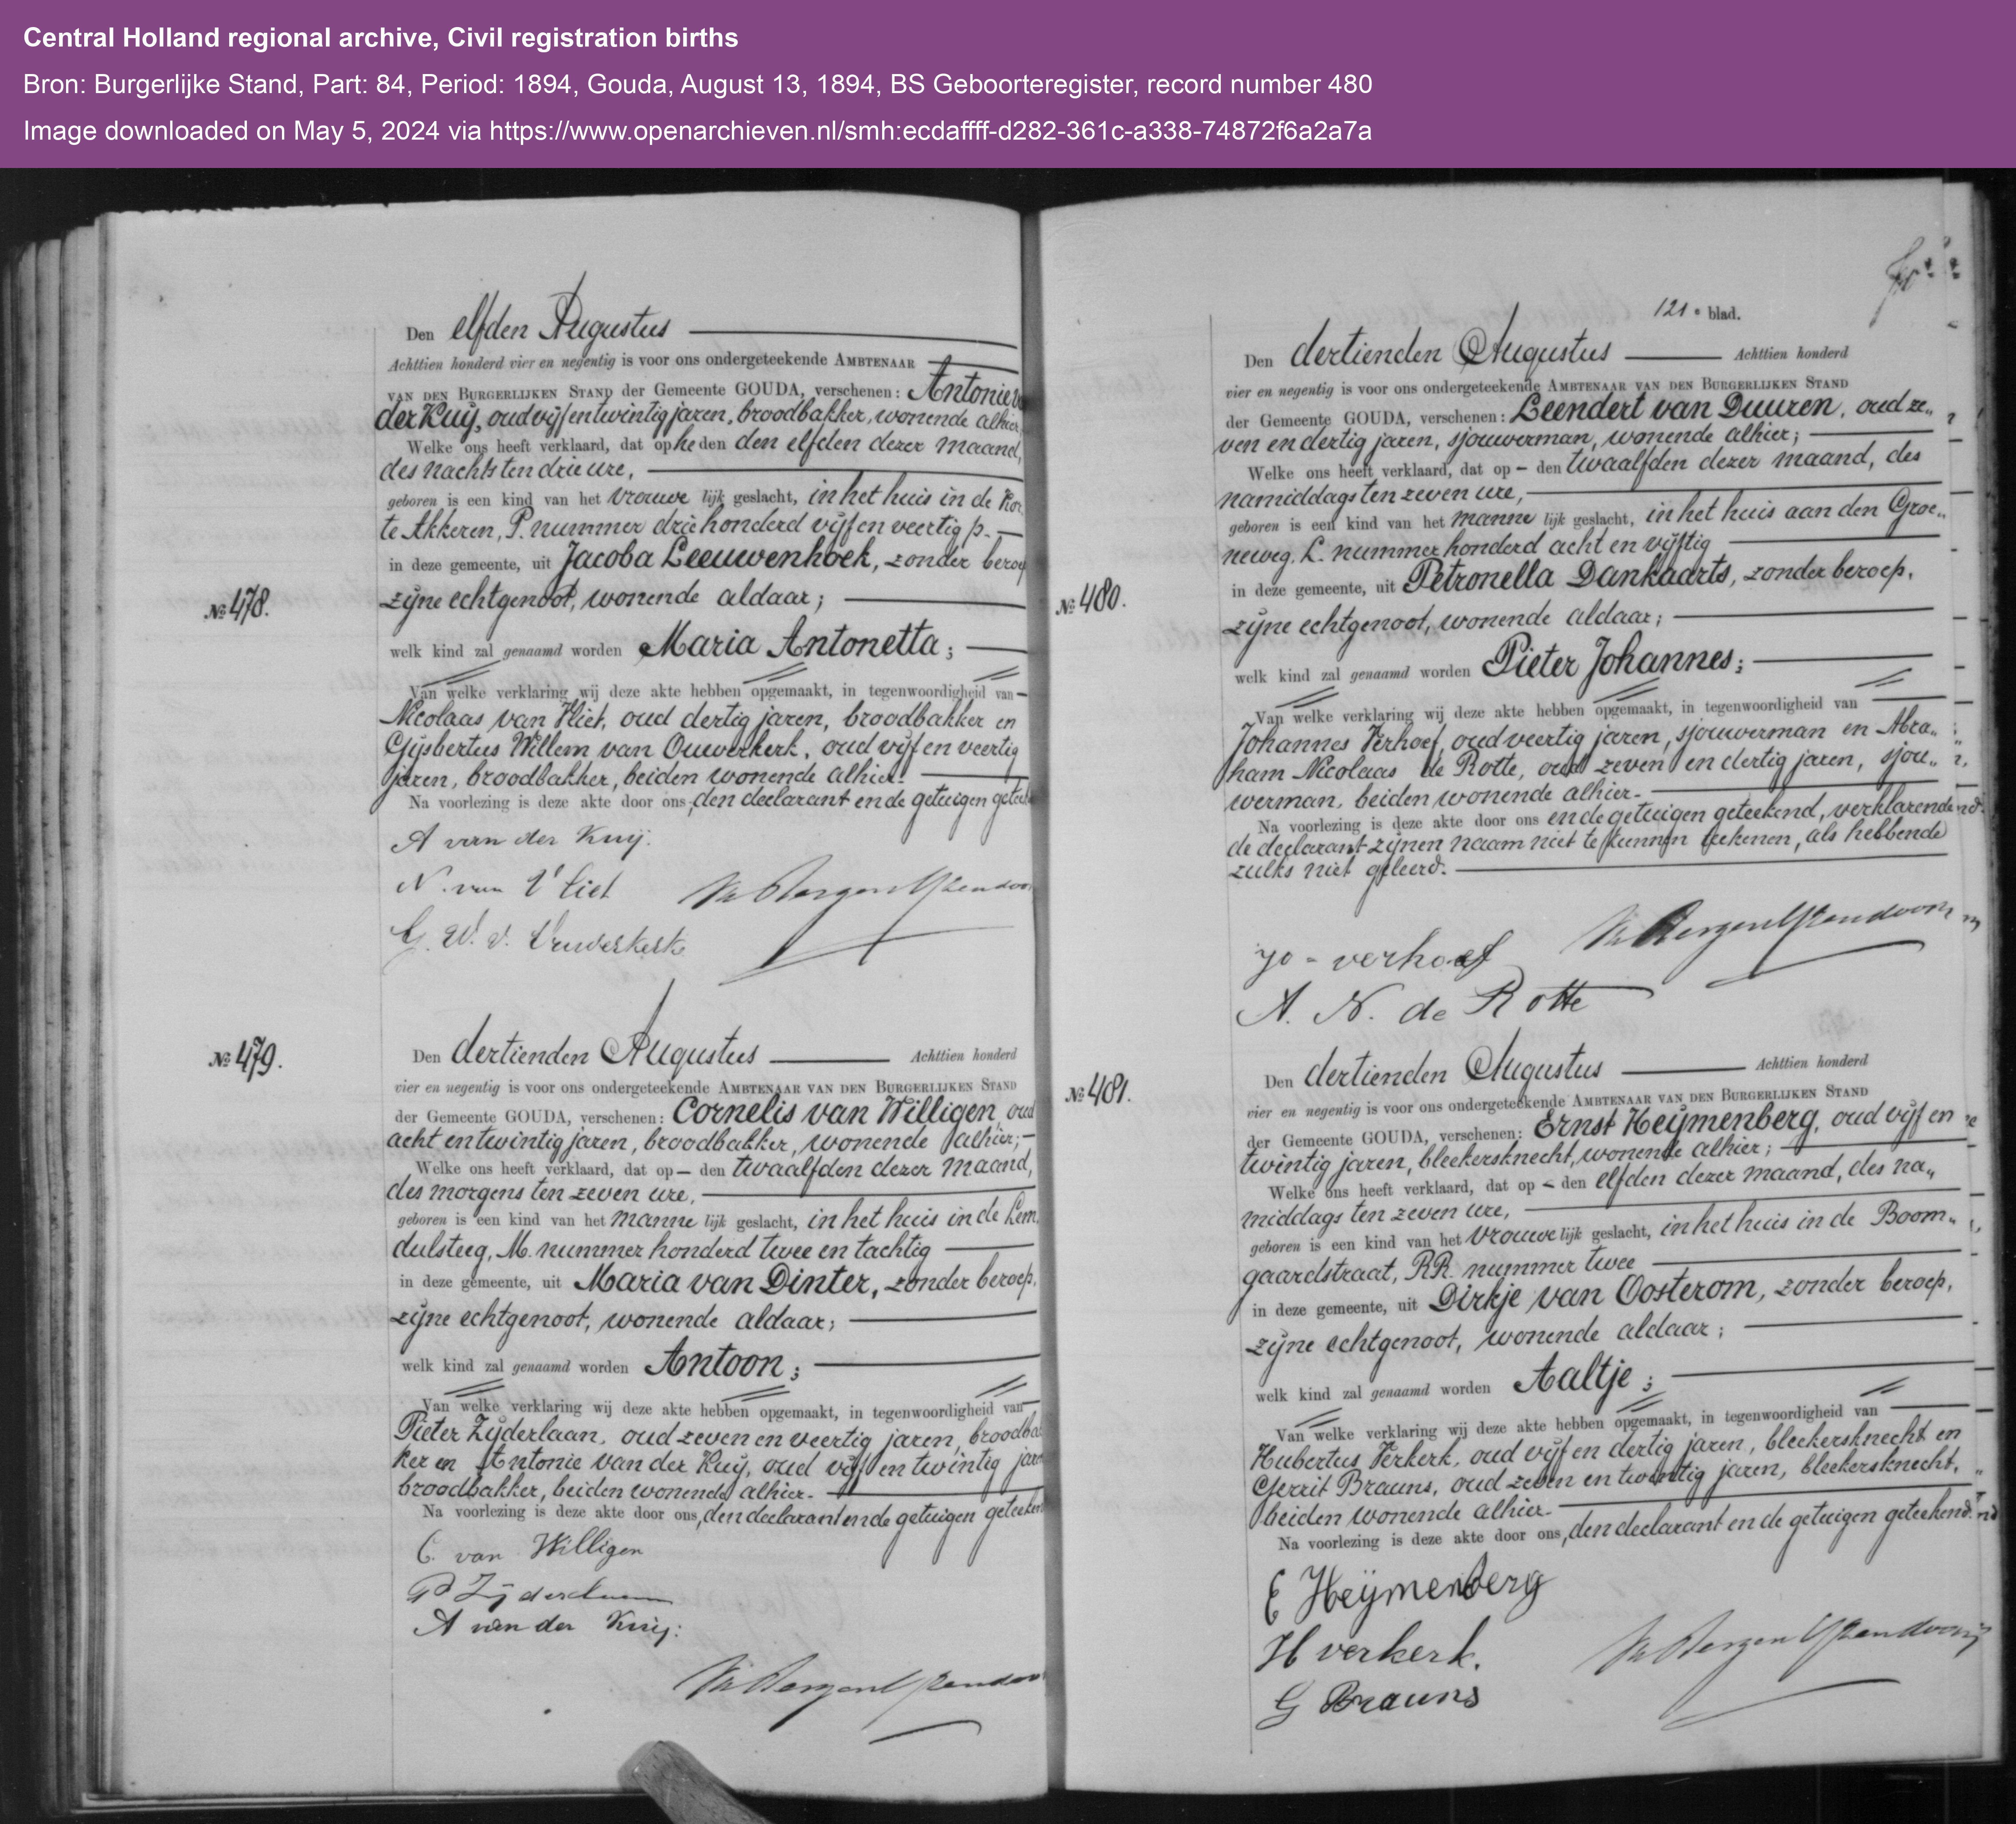 Central Holland regional archive, Civil registration births
Bron: Burgerlijke Stand, Part: 84, Period: 1894, Gouda, August 13, 1894, BS Geboorteregister, record number 480
Image downloaded on May 5, 2024 via https://www.openarchieven.nl/smh:ecdaffff-d282-361c-a338-74872f6a2a7a
№ 478.
Den elfden Augustus
Achttien honderd vier en negentig is voor ons ondergeteekende AMBTENAAR
VAN DEN BURGERLIJKEN STAND der Gemeente GOUDA, verschenen: Antonie
der Kuij, oud vijf en twintig jaren, broodbakker, wonende alhier,
Welke ons heeft verklaard, dat op heden den elfden dezer maand,
des nachts ten drie ure,
geboren is een kind van het vrouwelijk geslacht, in het huis in de Kor
te Akkeren, P. nummer drie honderd vijf en veertig p.
in deze gemeente, uit Jacoba Leeuwenhoek, zonder beroep
zijne echtgenoot, wonende aldaar;
welk kind zal genaamd worden Maria Antonetta;
Van welke verklaring wij deze akte hebben opgemaakt, in tegenwoordigheid van
Nicolaas van Vliet, oud dertig jaren, broodbakker en
Gijsbertus Willem van Ouwerkerk, oud vijf en veertig
jaren, broodbakker, beiden wonende alhier.
Na voorlezing is deze akte door ons, den declarant en de getuigen geteek
A van der Kuij.
N. van Vliet
G. W. v. Ouwerkerk
№ 479.
Den dertienden Augustus Achttien honderd
vier en negentig is voor ons ondergeteekende AMBTENAAR VAN DEN BURGERLIJKEN STAND
der Gemeente GOUDA, verschenen: Cornelis van Willigen, oud
acht en twintig jaren, broodbakker, wonende alhier;
Welke ons heeft verklaard, dat op — den twaalfden dezer maand,
des morgens ten zeven ure,
geboren is een kind van het mannelijk geslacht, in het huis in de Lem
dulsteeg, M. nummer honderd twee en tachtig
in deze gemeente, uit Maria van Dinter, zonder beroep,
zijne echtgenoot, wonende aldaar;
welk kind zal genaamd worden Antoon;
Van welke verklaring wij deze akte hebben opgemaakt, in tegenwoordigheid van
Pieter Zijderlaan, oud zeven en veertig jaren, broodba
ker en Antonie van der Kuij, oud vijf en twintig jaren
broodbakker, beiden wonende alhier.
Na voorlezing is deze akte door ons, den declarant en de getuigen geteeken
C. van Willigen
P Zijderlaan
A van der Kuij.
121e blad.
№ 480.
Den dertienden Augustus Achttien honderd
vier en negentig is voor ons ondergeteekende AMBTENAAR VAN DEN BURGERLIJKEN STAND
der Gemeente GOUDA, verschenen: Leendert van Duuren, oud ze„
ven en dertig jaren, sjouwerman, wonende alhier;
Welke ons heeft verklaard, dat op — den twaalfden dezer maand, des
namiddags ten zeven ure,
geboren is een kind van het mannelijk geslacht, in het huis aan den Groe„
neweg, L. nummer honderd acht en vijftig
in deze gemeente, uit Petronella Dankaarts, zonder beroep,
zijne echtgenoot, wonende aldaar;
welk kind zal genaamd worden Pieter Johannes;
Van welke verklaring wij deze akte hebben opgemaakt, in tegenwoordigheid van
Johannes Verhoef, oud veertig jaren, sjouwerman en Abra„
ham Nicolaas de Rotte, oud zeven en dertig jaren, sjou„
werman, beiden wonende alhier.
Na voorlezing is deze akte door ons en de getuigen geteekend, verklarende
de declarant zijnen naam niet te kunnen teekenen, als hebbende
zulks niet geleerd.
Jo = verhoef
A. N. de Rotte
№ 481.
Den dertienden Augustus Achttien honderd
vier en negentig is voor ons ondergeteekende AMBTENAAR VAN DEN BURGERLIJKEN STAND
der Gemeente GOUDA, verschenen: Ernst Heijmenberg, oud vijf en
twintig jaren, bleekersknecht, wonende alhier;
Welke ons heeft verklaard, dat op — den elfden dezer maand, des na„
middags ten zeven ure,
geboren is een kind van het vrouwelijk geslacht, in het huis in de Boom„
gaardstraat, RR. nummer twee
in deze gemeente, uit Dirkje van Oosterom, zonder beroep,
zijne echtgenoot, wonende aldaar;
welk kind zal genaamd worden Aaltje;
Van welke verklaring wij deze akte hebben opgemaakt, in tegenwoordigheid van
Hubertus Verkerk, oud vijf en dertig jaren, bleekersknecht en
Gerrit Brauns, oud zeven en twintig jaren, bleekersknecht,
beiden wonende alhier.
Na voorlezing is deze akte door ons, den declarant en de getuigen geteekend.
E Heijmenberg
H verkerk.
G Brauns